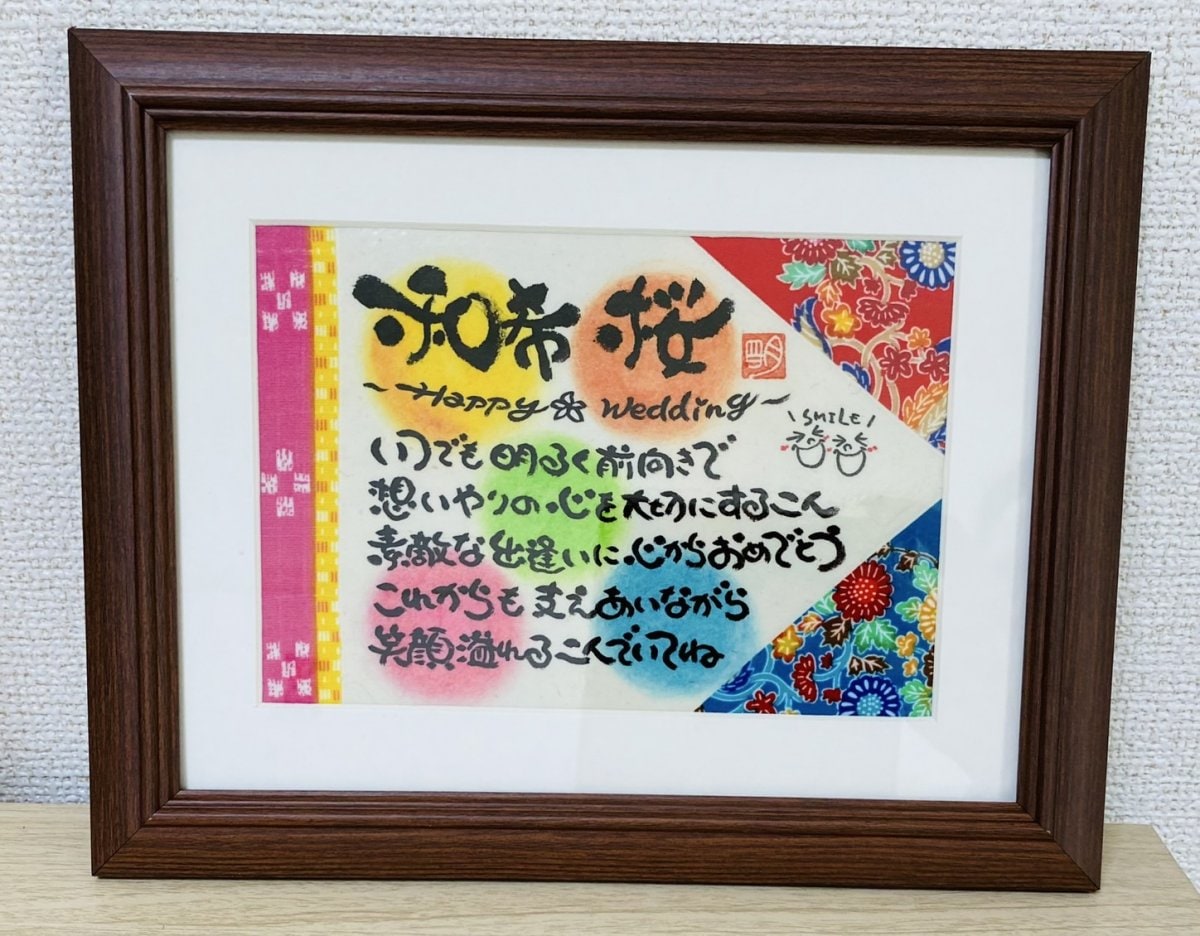 和希 桜
~Happy Wedding~
\SMILE/
いつでも明るく前向きで
想いやりの心を大切にするこん
素敵な出逢いに心からおめでとう
これからも支えあいながら
笑顔溢れるこんでいてね